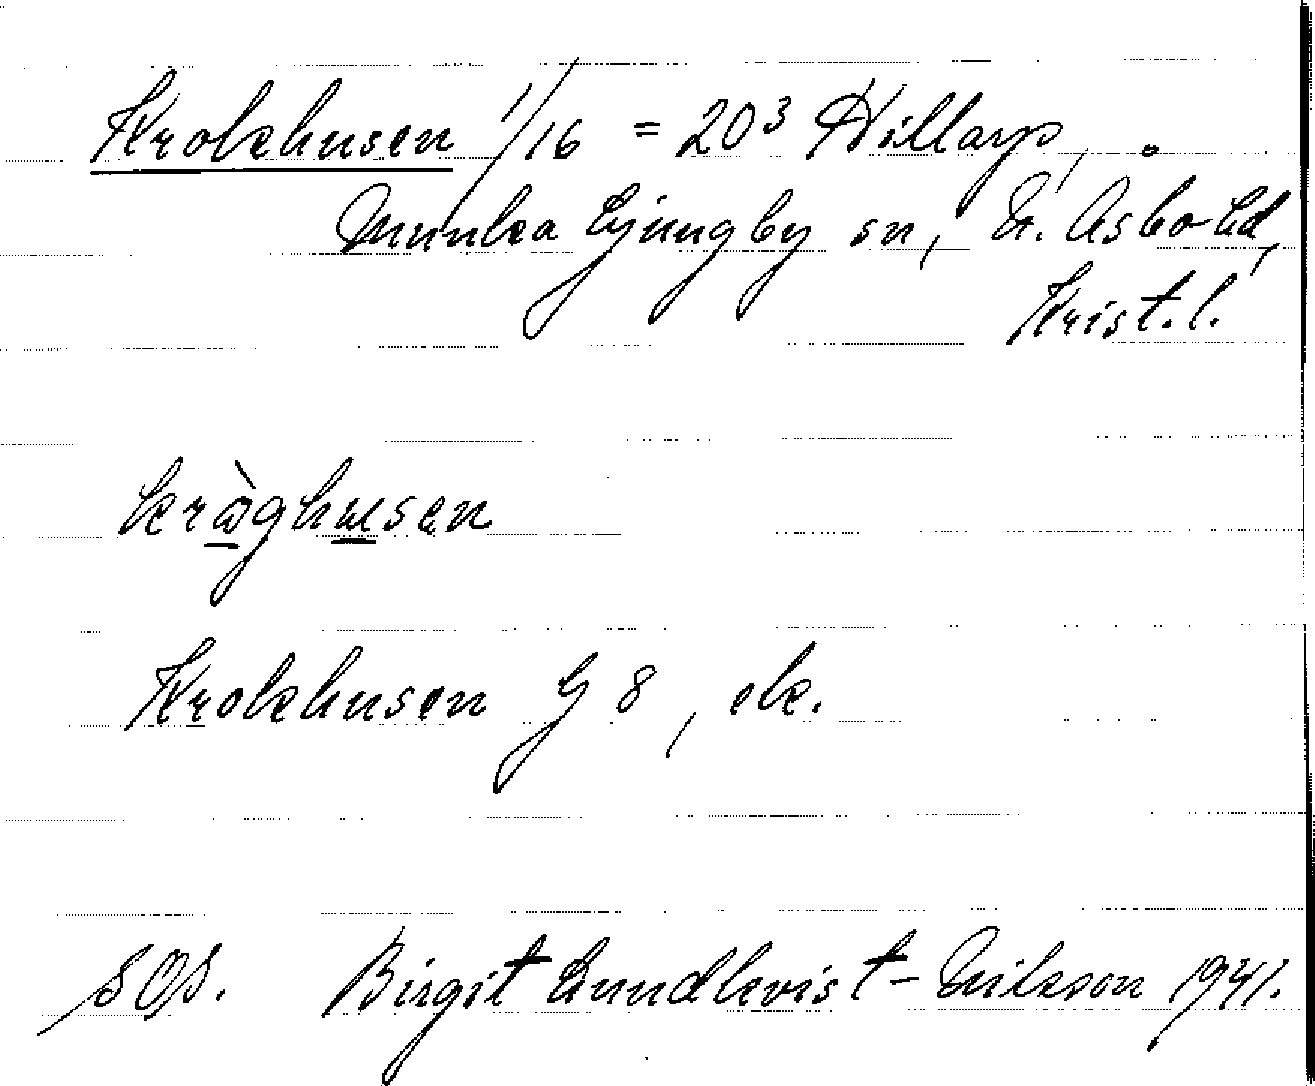 Krokhusen 1/16 = 20³ Hillarp,
Munka Ljungby sn, N. Åsbo hd,
Krist. l.
Krokhusen G 8, ek.
SOS. Birgit Lundkvist-Nilsson 1941.